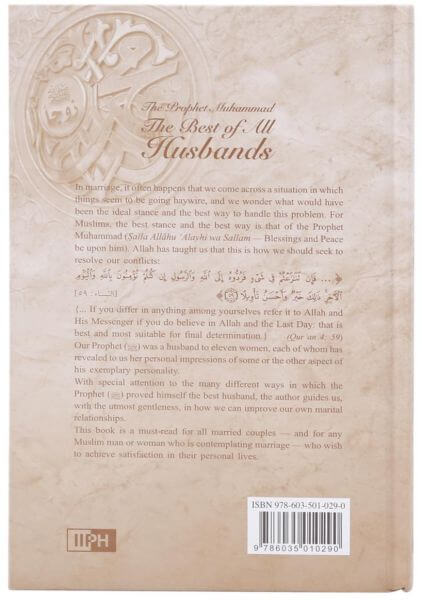 The Prophet Muhammad
The Best of All
Husbands
In marriage, it often happens that we come across a situation in which
things seem to be going haywire, and we wonder what would have
been the ideal stance and the best way to handle this problem. For
Muslims, the best stance and the best way is that of the Prophet
Muhammad (Ṣalla Allâhu ‘Alayhi wa Sallam — Blessings and Peace
be upon him). Allah has taught us that this is how we should seek to
resolve our conflicts:
﴿... فَإِن تَنَٰزَعْتُمْ فِى شَىْءٍ فَرُدُّوهُ إِلَى ٱللَّهِ وَٱلرَّسُولِ إِن كُنتُمْ تُؤْمِنُونَ بِٱللَّهِ وَٱلْيَوْمِ
ٱلْءَاخِرِ ذَٰلِكَ خَيْرٌ وَأَحْسَنُ تَأْوِيلًا ۝٥٩﴾ [النساء: ٥٩]
{... If you differ in anything among yourselves refer it to Allah and
His Messenger if you do believe in Allah and the Last Day: that is
best and most suitable for final determination.} (Qur'an 4: 59)
Our Prophet (ﷺ) was a husband to eleven women, each of whom has
revealed to us her personal impressions of some or the other aspect of
his exemplary personality.
With special attention to the many different ways in which the
Prophet (ﷺ) proved himself the best husband, the author guides us,
with the utmost gentleness, in how we can improve our own marital
relationships.
This book is a must-read for all married couples — and for any
Muslim man or woman who is contemplating marriage — who wish
to achieve satisfaction in their personal lives.
ISBN 978-603-501-029-0
9 786035 010290
IIPH